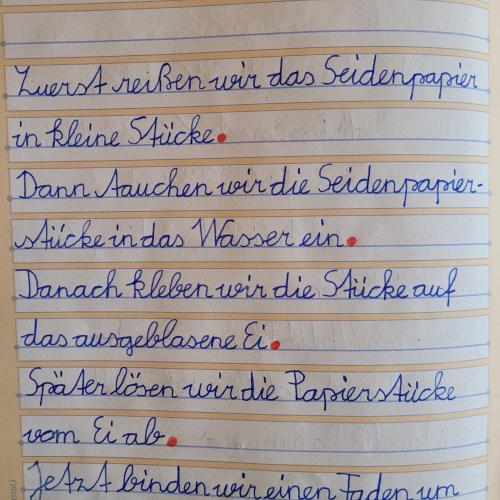 Zuerst reißen wir das Seidenpapier
in kleine Stücke.
Dann tauchen wir die Seidenpapier-
stücke in das Wasser ein.
Danach kleben wir die Stücke auf
das ausgeblasene Ei.
Später lösen wir die Papierstücke
vom Ei ab.
Jetzt binden wir einen Faden um